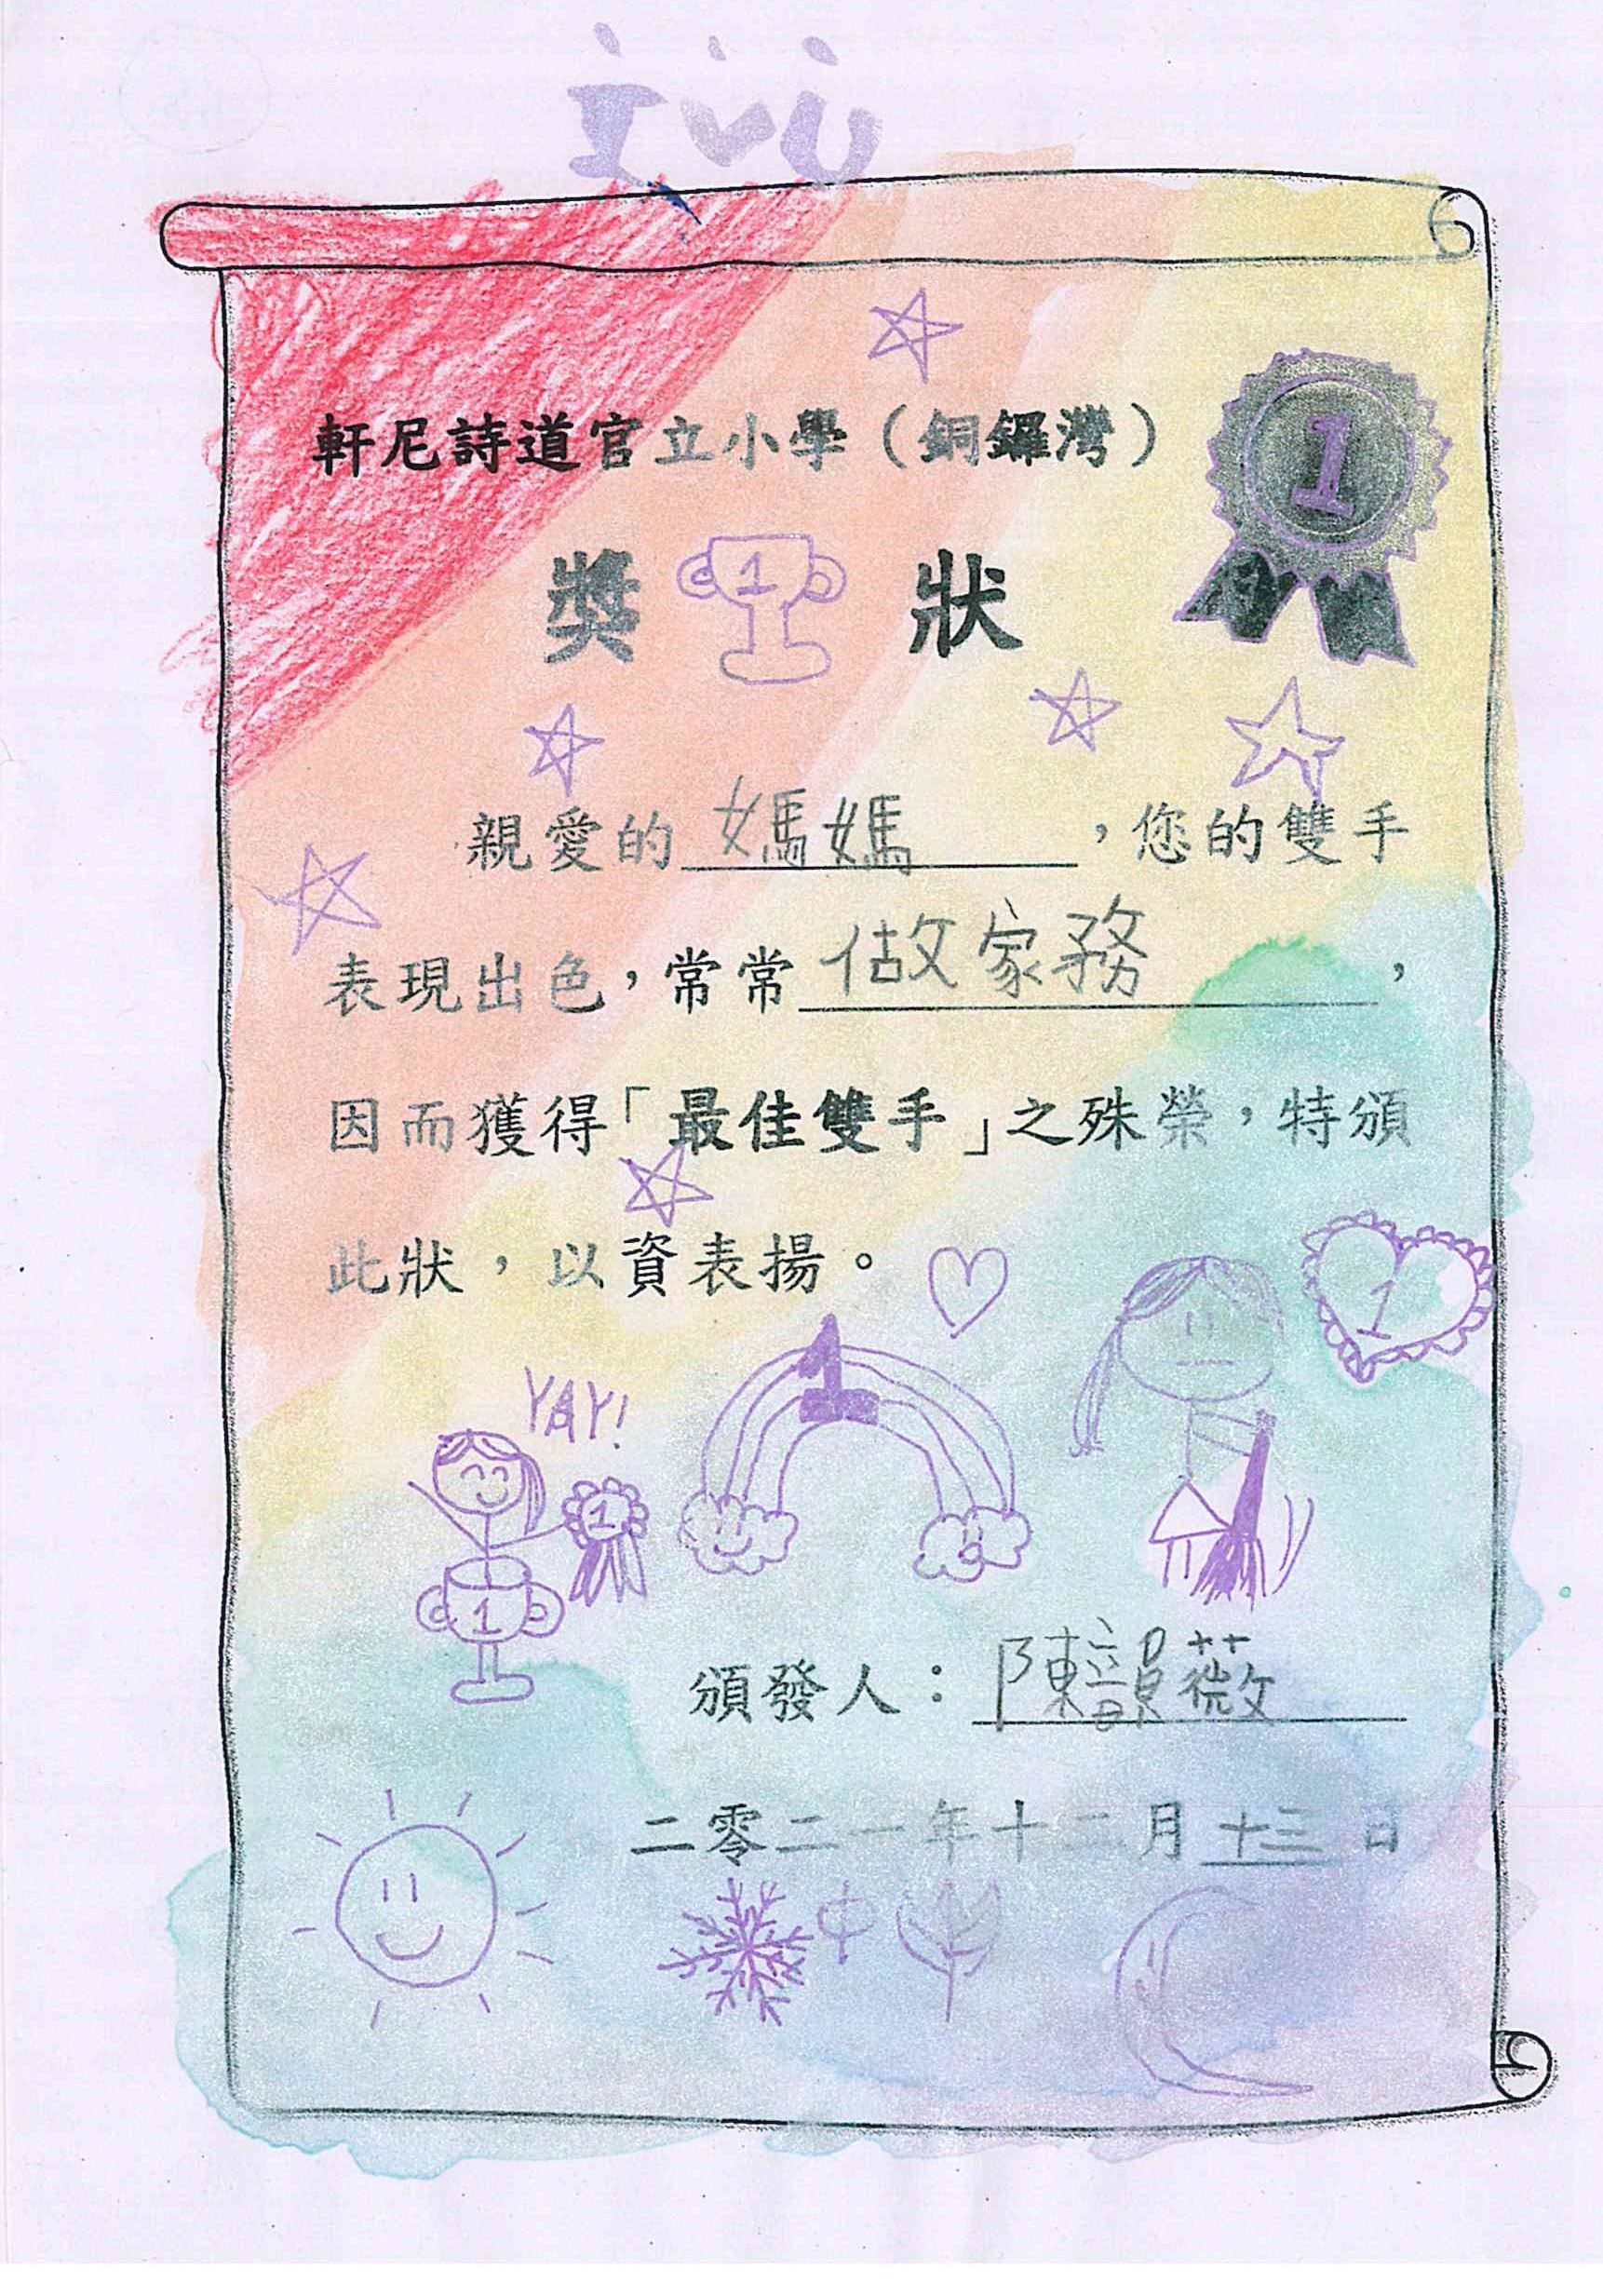 軒尼詩道官立小學（銅鑼灣）
1
獎 1 狀
親愛的媽媽，您的雙手
表現出色，常常做家務，
因而獲得「最佳雙手」之殊榮，特頒
此狀，以資表揚。
1
1
YAY!
1
1
頒發人：陳韻薇
二零二一年十二月十三日